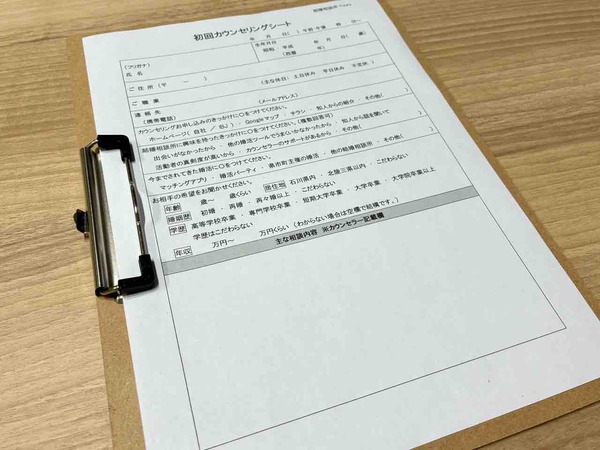 結婚相談所
初回カウンセリングシート
年 月 日( ) 午前・午後 時 分~
(フリガナ)
氏 名
生年月日
昭和 平成 年 月 日( 歳)
(西暦 年)
ご 住 所 (〒 ー )
(主な休日: 土日休み 平日休み 不定休 )
ご 職 業
連 絡 先
(携帯電話) (メールアドレス)
カウンセリングお申し込みのきっかけに○をつけてください。
ホームページ( 自社 / IBJ )・Googleマップ・チラシ・知人からの紹介・その他( )
結婚相談所に興味を持ったきっかけに○をつけてください。(複数回答可)
出会いがなかったから ・ 他の婚活ツールでうまくいかなかったから ・ 知人から話を聞いて
活動者の真剣度が高いから ・ カウンセラーのサポートがあるから ・ その他( )
今までされてきた婚活に○をつけてください。
マッチングアプリ ・ 婚活パーティ ・ 県市町主催の婚活 ・ 他の結婚相談所 ・ その他( )
お相手の希望をお聞かせください。
年齢 歳~ 歳くらい 居住地 石川県内 ・ 北陸三県以内 ・ こだわらない
婚姻歴 初婚 ・ 再婚 ・ 再々婚以上 ・ こだわらない
学歴 高等学校卒業 ・ 専門学校卒業 ・ 短期大学卒業 ・ 大学卒業 ・ 大学院卒業以上
学歴はこだわらない
年収 万円~ 万円くらい (わからない場合は空欄で結構です。)
主な相談内容 ※カウンセラー記載欄